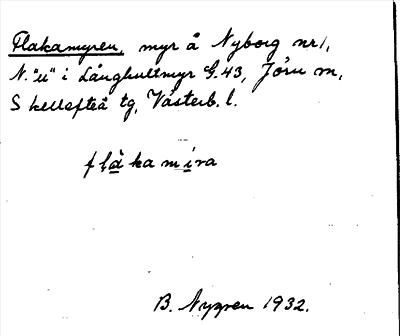 Flakamyren, myr å Nyborg nr 1,
N. "u" i Långhultmyr G. 43, Jörn sn,
Skellefteå tg, Västerb. l.
flàkamira
B. Nygren 1932.